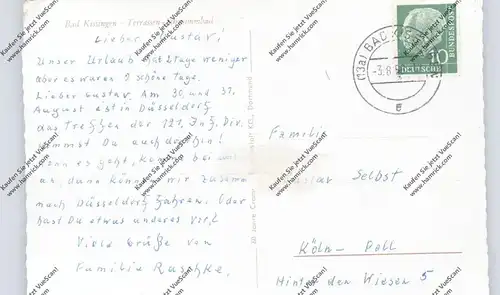 Bad Kissingen - Terrassenschwimmbad
Lieber Gustav!
Unser Urlaub hat Tage weniger
aber es waren 9 schöne Tage.
Lieber Gustav. Am 30. und 31.
August ist in Düsseldorf
das Treffen der 121. Inf. Div.
kommst Du auch dorthin!
Wenn es geht, bei
an, dann können wir zusammen
nach Düsseldorf fahren. Oder
hast Du etwas anderes vor?
Viele Grüße von
Familie Raschke.
(13a) BAD KIS
-3.8.5
e
10
DEUTSCHE
BUNDESPOST
Familie
Selbst
Köln-Poll
Hinter den Wiesen 5
Kaufen Sie jetzt VueScan!
www.hamrick.com